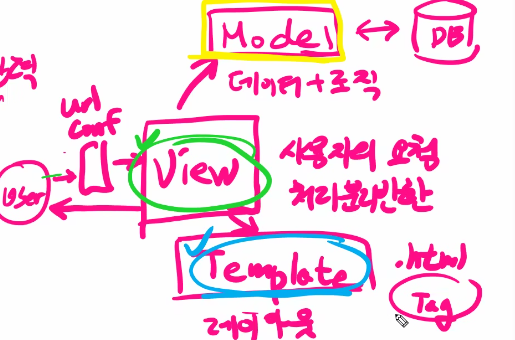 Model
DB
데이터+로직
url
conf
View
사용자의 요청
처리불리반환
User
Template
.html
Tag
레이아웃